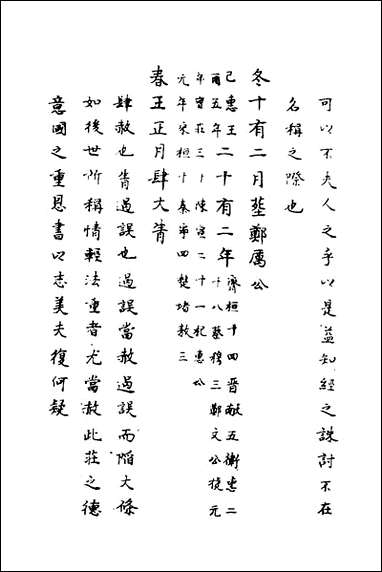 可以不夫人之乎以是益知經之誅討不在
名稱之際也
冬十有二月葬鄭厲公
己惠王二十有二年齊桓十四晉獻五衛惠二
酉五年十八蔡穆三鄭文公捷元
年曹莊三十陳宣二十一杞惠公
元年宋桓十秦宣四楚堵敖三
春王正月肆大眚
肆赦也眚過誤也過誤當赦過誤而陷大條
如後世所稱情輕法重者尤當赦此莊之德
意國之重恩書以志美夫復何疑